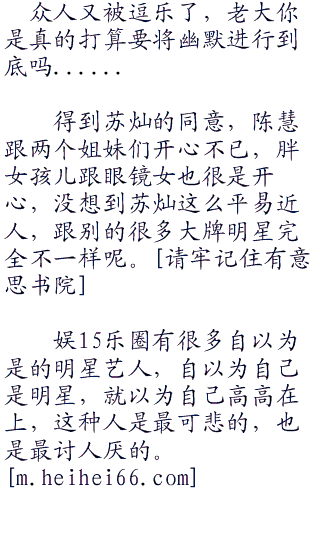 众人又被逗乐了，老大你
是真的打算要将幽默进行到
底吗......
得到苏灿的同意，陈慧
跟两个姐妹们开心不已，胖
女孩儿跟眼镜女也很是开
心，没想到苏灿这么平易近
人，跟别的很多大牌明星完
全不一样呢。[请牢记住有意
思书院]
娱15乐圈有很多自以为
是的明星艺人，自以为自己
是明星，就以为自己高高在
上，这种人是最可悲的，也
是最讨人厌的。
[m.heihei66.com]